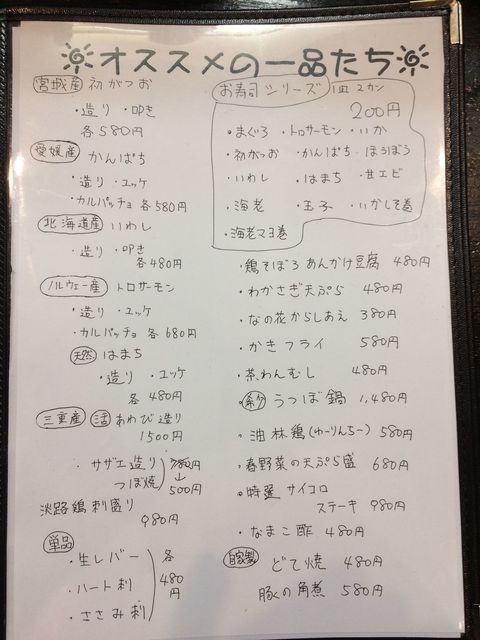 オススメの一品たち
宮城産 初がつお
・造り ・叩き
各580円
愛媛産 かんぱち
・造り ・ユッケ
・カルパッチョ 各580円
北海道産 いわし
・造り ・叩き
各480円
ノルウェー産 トロサーモン
・造り ・ユッケ
・カルパッチョ 各680円
天然 はまち
・造り ・ユッケ
各480円
三重産 活 あわび造り
1500円
・サザエ造り 780円
つぼ焼 ↓
500円
淡路鶏刺盛り
980円
単品
・生レバー 各
・ハート刺 480
・ささみ刺 円
お寿司シリーズ 1皿2カン
200円
・まぐろ ・トロサーモン ・いか
・初がつお ・かんぱち ・ほうぼう
・いわし ・はまち ・甘エビ
・海老 ・玉子 ・いかしそ巻
・海老マヨ巻
・鶏そぼろあんかけ豆腐 480円
・わかさぎ天ぷら 480円
・なの花からしあえ 380円
・かきフライ 580円
・茶わんむし 480円
うつぼ鍋 1,480円
・油林鶏(ゆーりんちー) 580円
・春野菜の天ぷら盛 680円
・特選 サイコロ
ステーキ 980円
・なまこ酢 480円
自家製 どて焼 480円
豚の角煮 580円